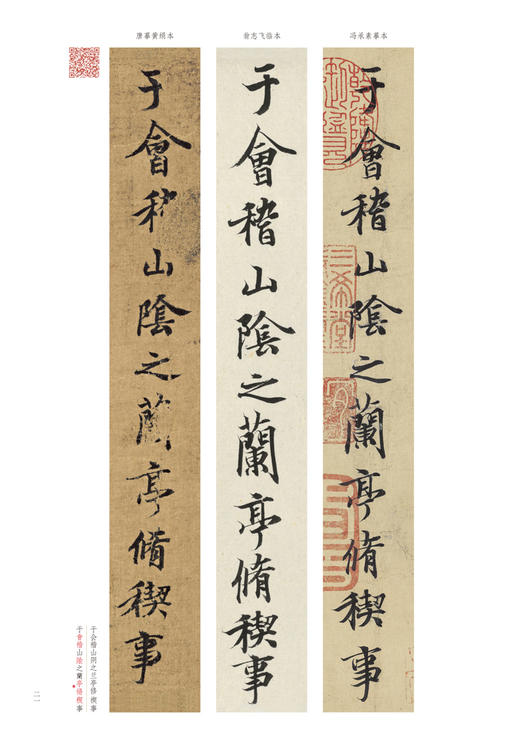 冯承素摹本
于會稽山陰之蘭亭脩稧事
翁志飞临本
于會稽山陰之蘭亭脩稧事
唐摹黄绢本
于會稽山陰之蘭亭脩稧事
于会稽山阴之兰亭修禊事
于會稽山陰之蘭亭脩稧事
二一